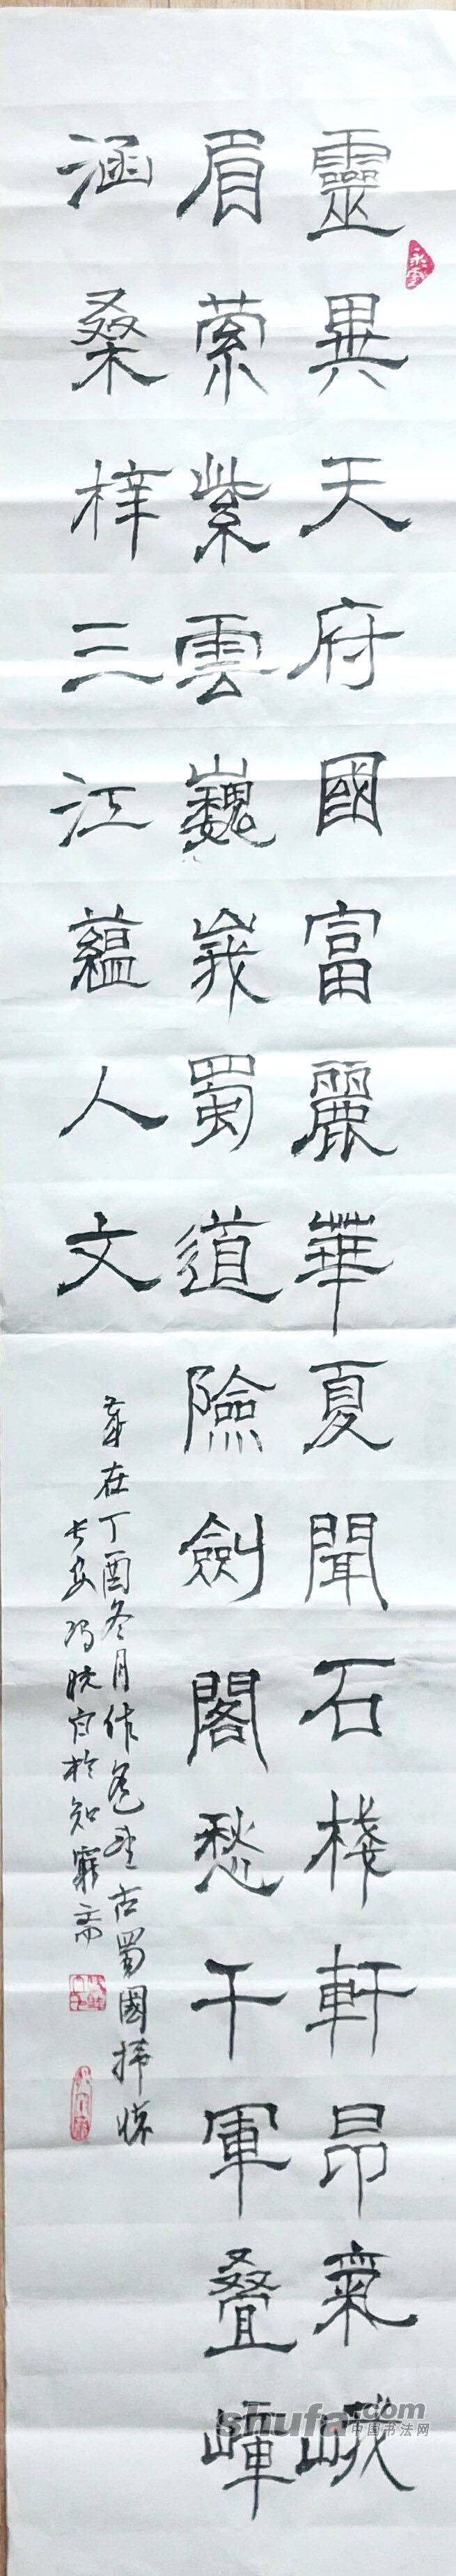 靈異天府國富麗華夏聞石棧軒昂氣峨
眉萦紫雲巍峩蜀道險劍閣愁千軍叠嶂
涵桑梓三江蘊人文
歲在丁酉冬月作
古蜀國抒懷
長安
於知窮斋
shufa.com
中国书法网